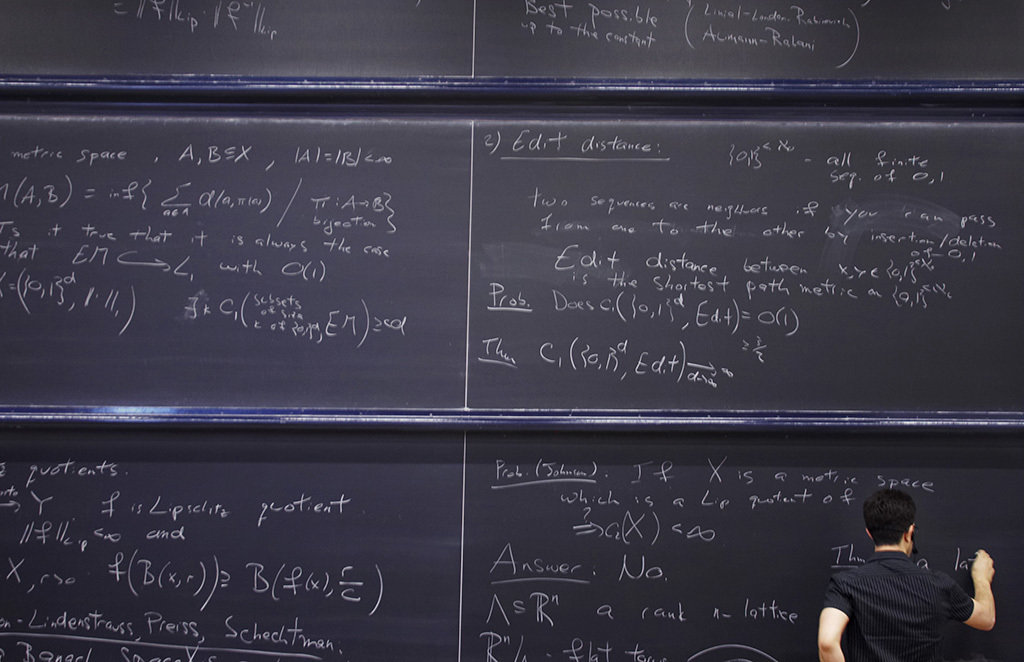 = ||f||Lip · ||f⁻¹||Lip
Best possible
up to the constant
(Linial-London-Rabinovich
Aumann-Rabani)
metric space, A,B⊆X, |A|=|B|<∞
(A,B) = inf{ Σ a∈A d(a,π(a)) / π: A→B}
bijection
Is it true that it is always the case
that EM ↪ L₁ with O(1)
X=({0,1}^d, ||·||₁)
∃k C₁(subsets of size k of {0,1}^d, EM) ≥ cd
2) Edit distance:
{0,1}^{<ℵ₀} - all finite
seq. of 0,1
two sequences are neighbors if you can pass
from one to the other by insertion/deletion
of 0,1
Edit distance between x,y∈{0,1}^{<ℵ₀}
is the shortest path metric on {0,1}^{<ℵ₀}
Prob. Does C₁({0,1}^d, Edit) = O(1)
≥ 3/2
Thm C₁({0,1}^d, Edit) → ∞
d→∞
quotients.
→ Y f is Lipschitz quotient
||f||Lip < ∞ and
X, r>0 f(B(x,r)) ⊇ B(f(x), r/c)
Lindenstrauss, Preiss, Schechtman.
Banach spaces
Prob. (Johnson). If X is a metric space
which is a Lip quotient of
?⇒ C₂(X) < ∞
Answer. No.
Thm a lat
Λ⊆ℝⁿ a rank n-lattice
ℝⁿ/Λ - flat torus